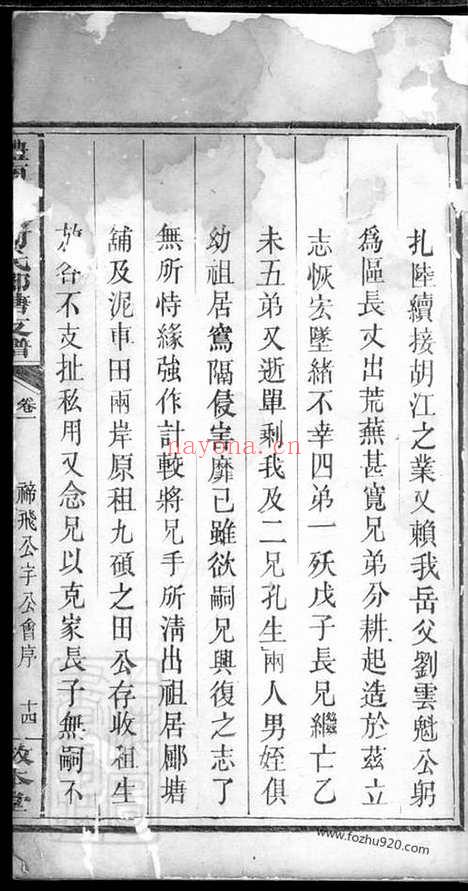 扎陸續接胡江之業又賴我岳父劉雲魁公躬
為區長丈出荒蕪甚寬兄弟分耕起造於茲立
志恢宏墜緒不幸四弟一殀戊子長兄繼亡乙
未五弟又逝單剩我及二兄孔生兩人男姪俱
幼祖居窵隔侵害靡已雖欲嗣兄興復之志了
無所恃緣強作計較將兄手所清出祖居郿塘
舖及泥車田兩岸原租九碩之田公存收租生
放各不支扯私用又念兄以克家長子無嗣不
氏郿塘支譜
卷一
禘飛公字公會序
十四
敘本堂
nayona.cn
www.fozhu920.com